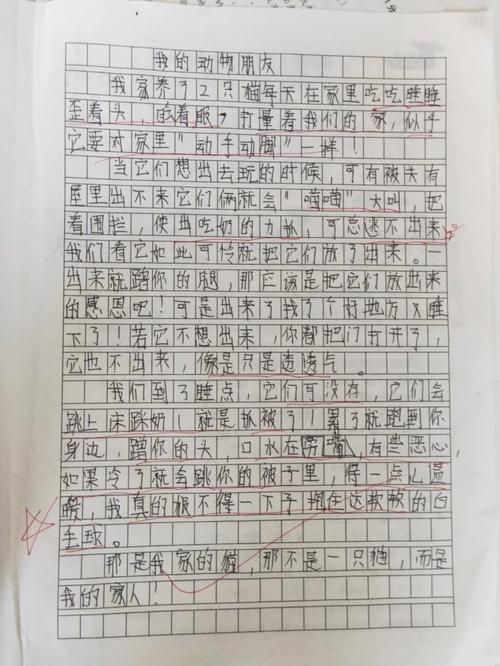 我的动物朋友
我家养了2只猫每天在家里吃吃睡睡
歪着头,眯着眼,打量着我们的家,似乎
它要对家里“动手动脚”一样!
当它们想出去玩的时候,可有被关有
屋里出不来它们俩就会“喵喵”大叫,把
着围拦,使出吃奶的力扒,可总逃不出来
我们看它如此可怜就把它们放了出来。一
出来就蹭你的腿,那应该是把它们放出来
的感恩吧!可是出来了找了个好地方又睡
下了!若它不想出来,你都把门打开了,
它也不出来,像是只是透透气。
我们到了睡点,它们可没有,它们会
跳上床踩奶!就是扒被了!累了就跑到你
身边,蹭你的头,口水在旁嘴,有些恶心,
如果冷了就会跳你的被子里,得一点儿温
暖,我真的恨不得一下子抱住这软软的白
毛球。
那是我家的猫,那不是一只猫,而是
我的家人!